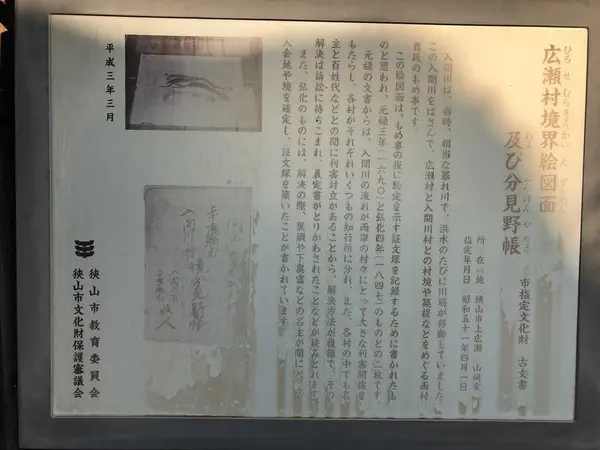 広瀬村境界絵図面
ひろせむらきょうかいえず
及び分見野帳
市指定文化財　古文書
所在地　狭山市上広瀬　山﨑家
指定年月日　昭和五十一年四月一日
入間川は、当時、相当な暴れ川で、洪水のたびに川筋が移動していました。
この入間川をはさんで、広瀬村と入間川村との村境や築堤などをめぐる両村
農民のもめ事です。
この絵図面は、もめ事の後に約定を示す証文塚を記録するために書かれたも
のと思われ、元禄三年（一六九〇）と弘化四年（一八四七）のものとの二枚です。
元禄の文書からは、入間川の流れが両岸の村々にとって大きな利害関係を
もたらし、各村がそれぞれいくつもの知行所に分れ、また、各村の中でも名
主と百姓代などとの間に利害対立があることから、解決方法が複雑で、その
解決は訴訟に持ちこまれ、裁定書がとりかわされたことなどが読みとれます。
また、弘化のものには、解決の際、黒須や下奥富などの名主が間に
入会地や境を確定し、証文塚を築いたことが書かれています。
平成三年三月
狭山市教育委員会
狭山市文化財保護審議会